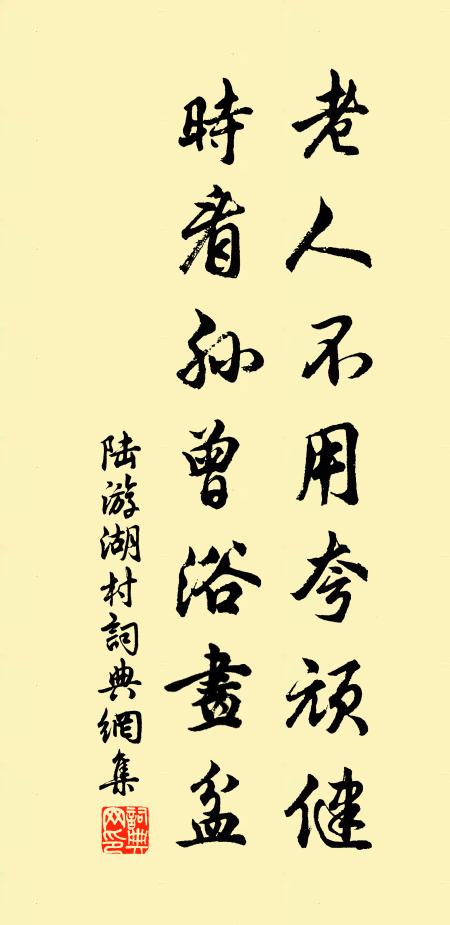 老人不用夸頑健
時看孫曾浴畫盆
陸游湖村詞典網集
詞典网印